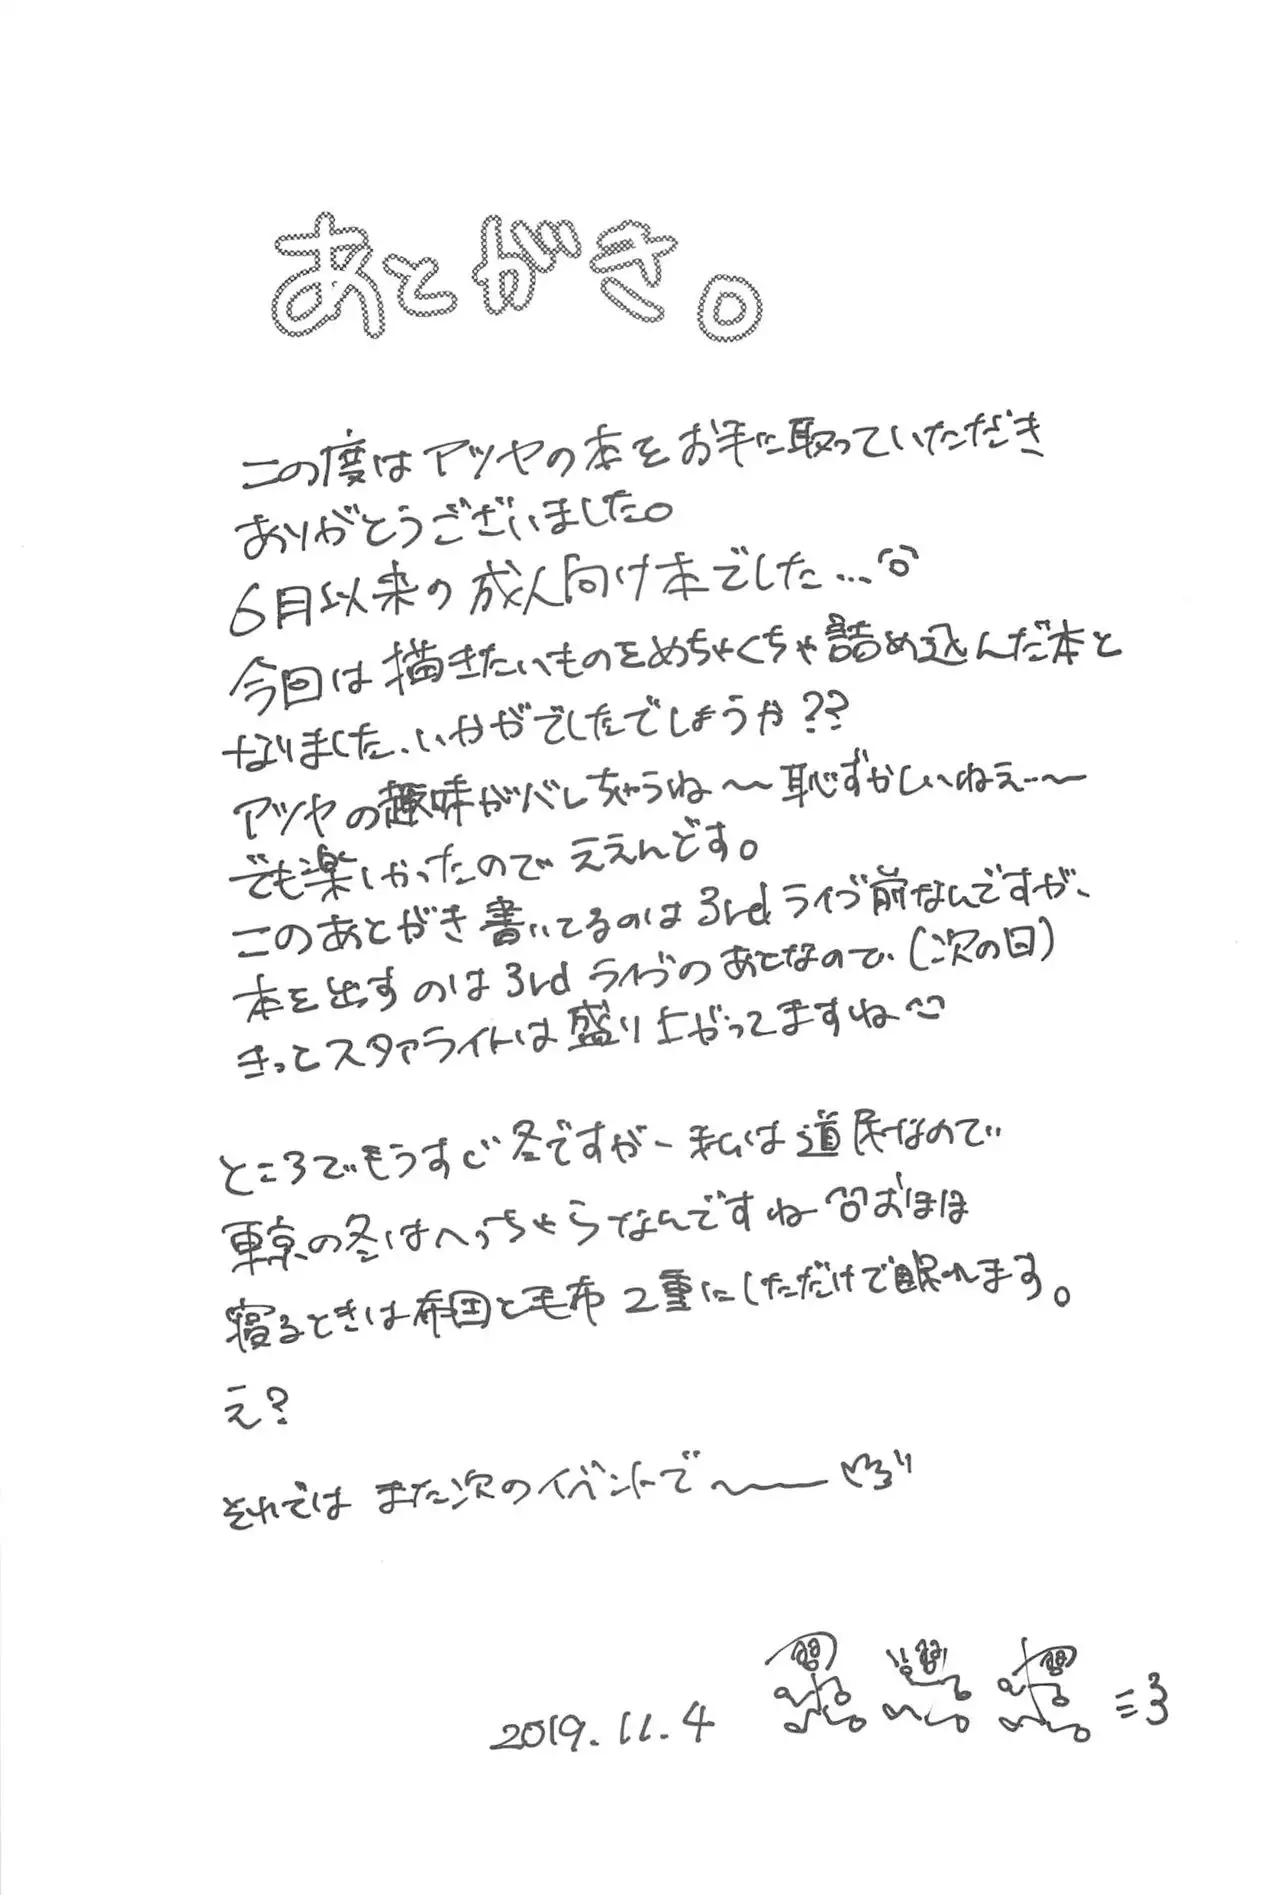 あとがき。
この度はアツヤの本をお手に取っていただき
ありがとうございました。
6月以来の成人向け本でした…
今回は描きたいものをめちゃくちゃ詰め込んだ本と
なりました、いかがでしたでしょうか??
アツヤの趣味がバレちゃうね〜恥ずかしいねぇ…〜
でも楽しかったのでええんです。
このあとがき書いてるのは3rdライブ前なんですが、
本を出すのは3rdライブのあとなので、(次の日)
きっとスタァライトは盛り上がってますね
ところでもうすぐ冬ですがー私は道民なので
東京の冬はへっちゃらなんですねーおほほ
寝るときは布団と毛布2重にしただけで眠れます。
え?
それではまた次のイベントで〜
2019.11.4